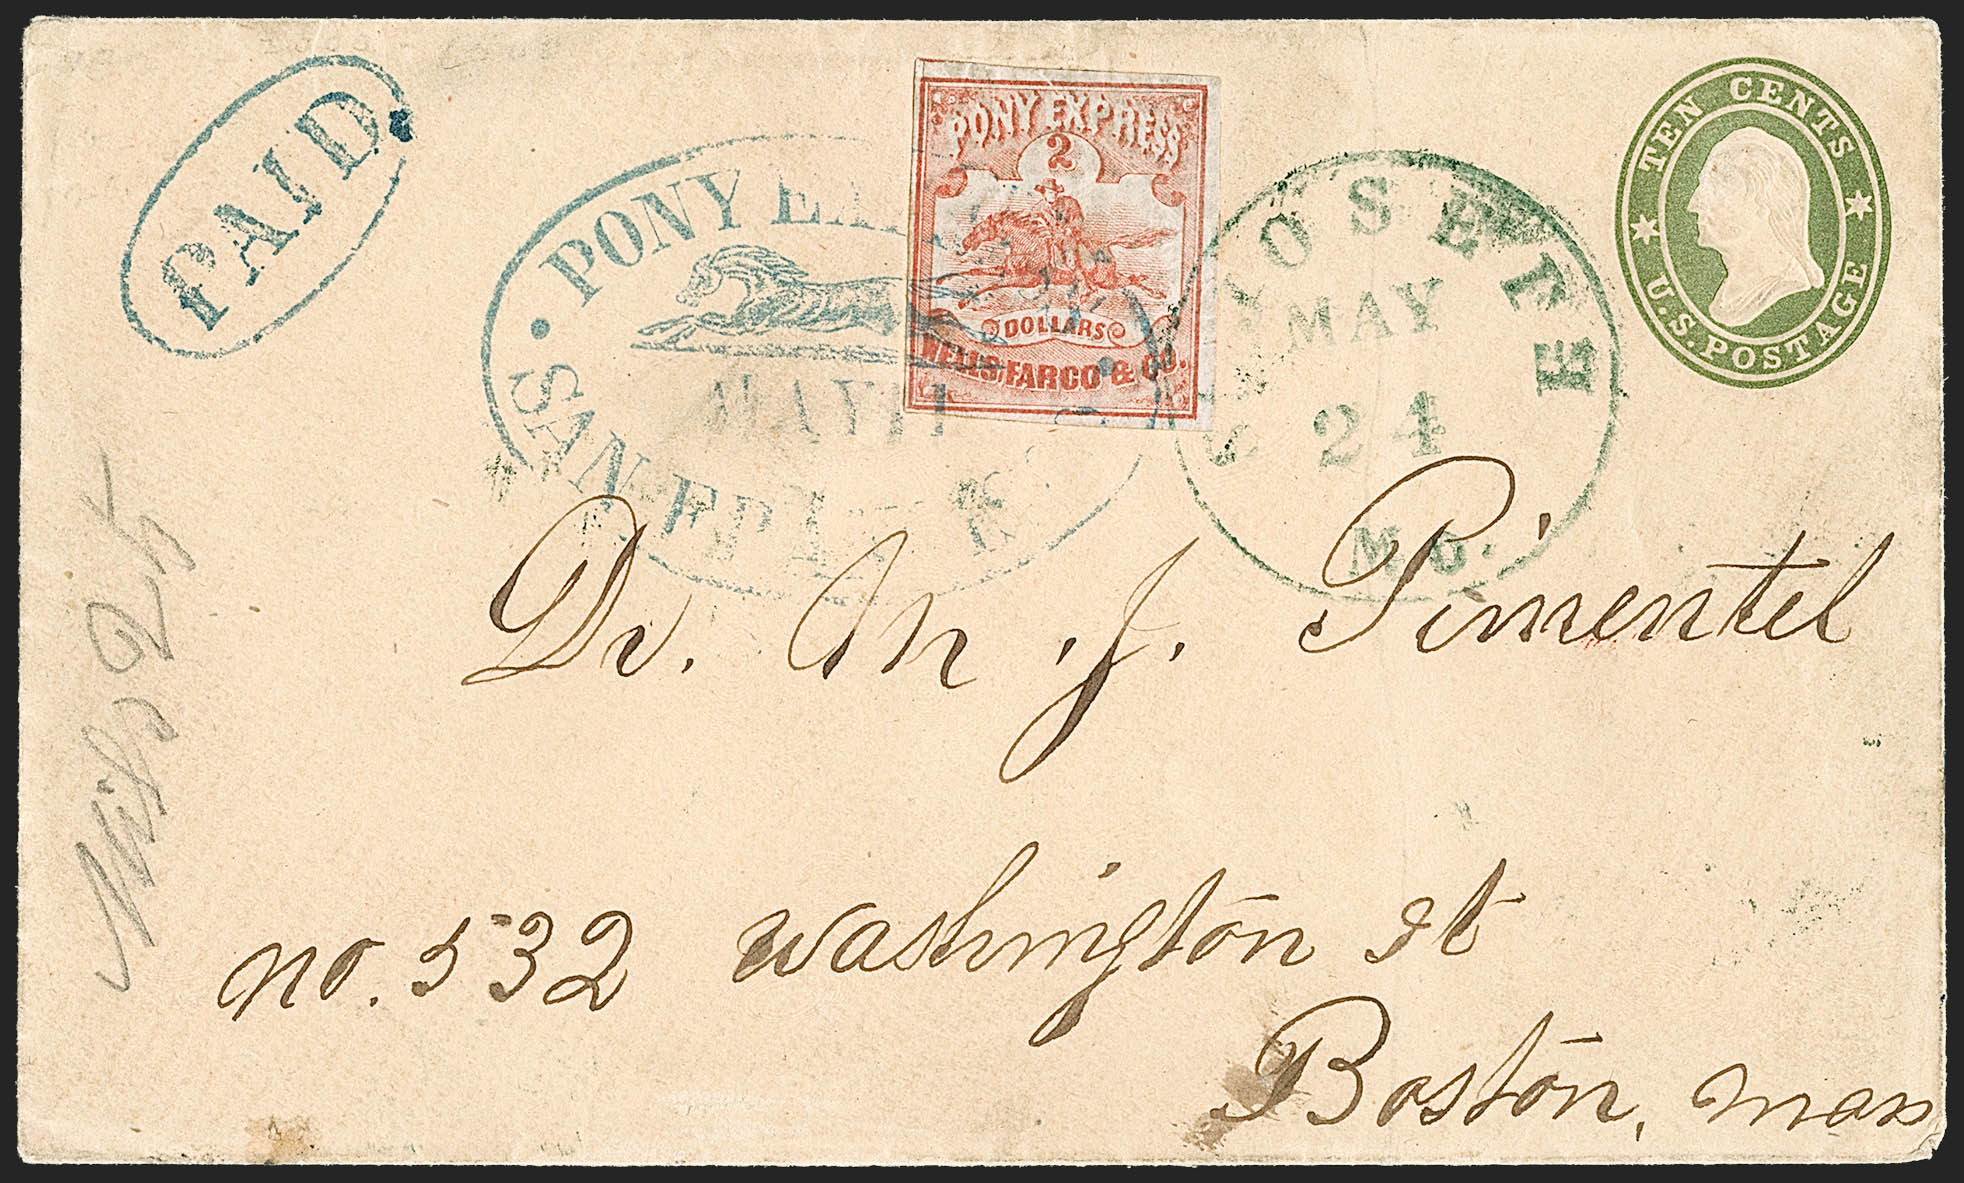 PAID
PONY
MAY 11
SAN FR
PONY EXPRESS
2
DOLLARS
WELLS, FARGO & CO.
ST JOSEPH
MAY
24
MO.
TEN CENTS
U.S. POSTAGE
Dr. M. J. Pimentel
no. 532 Washington st
Boston, Mass